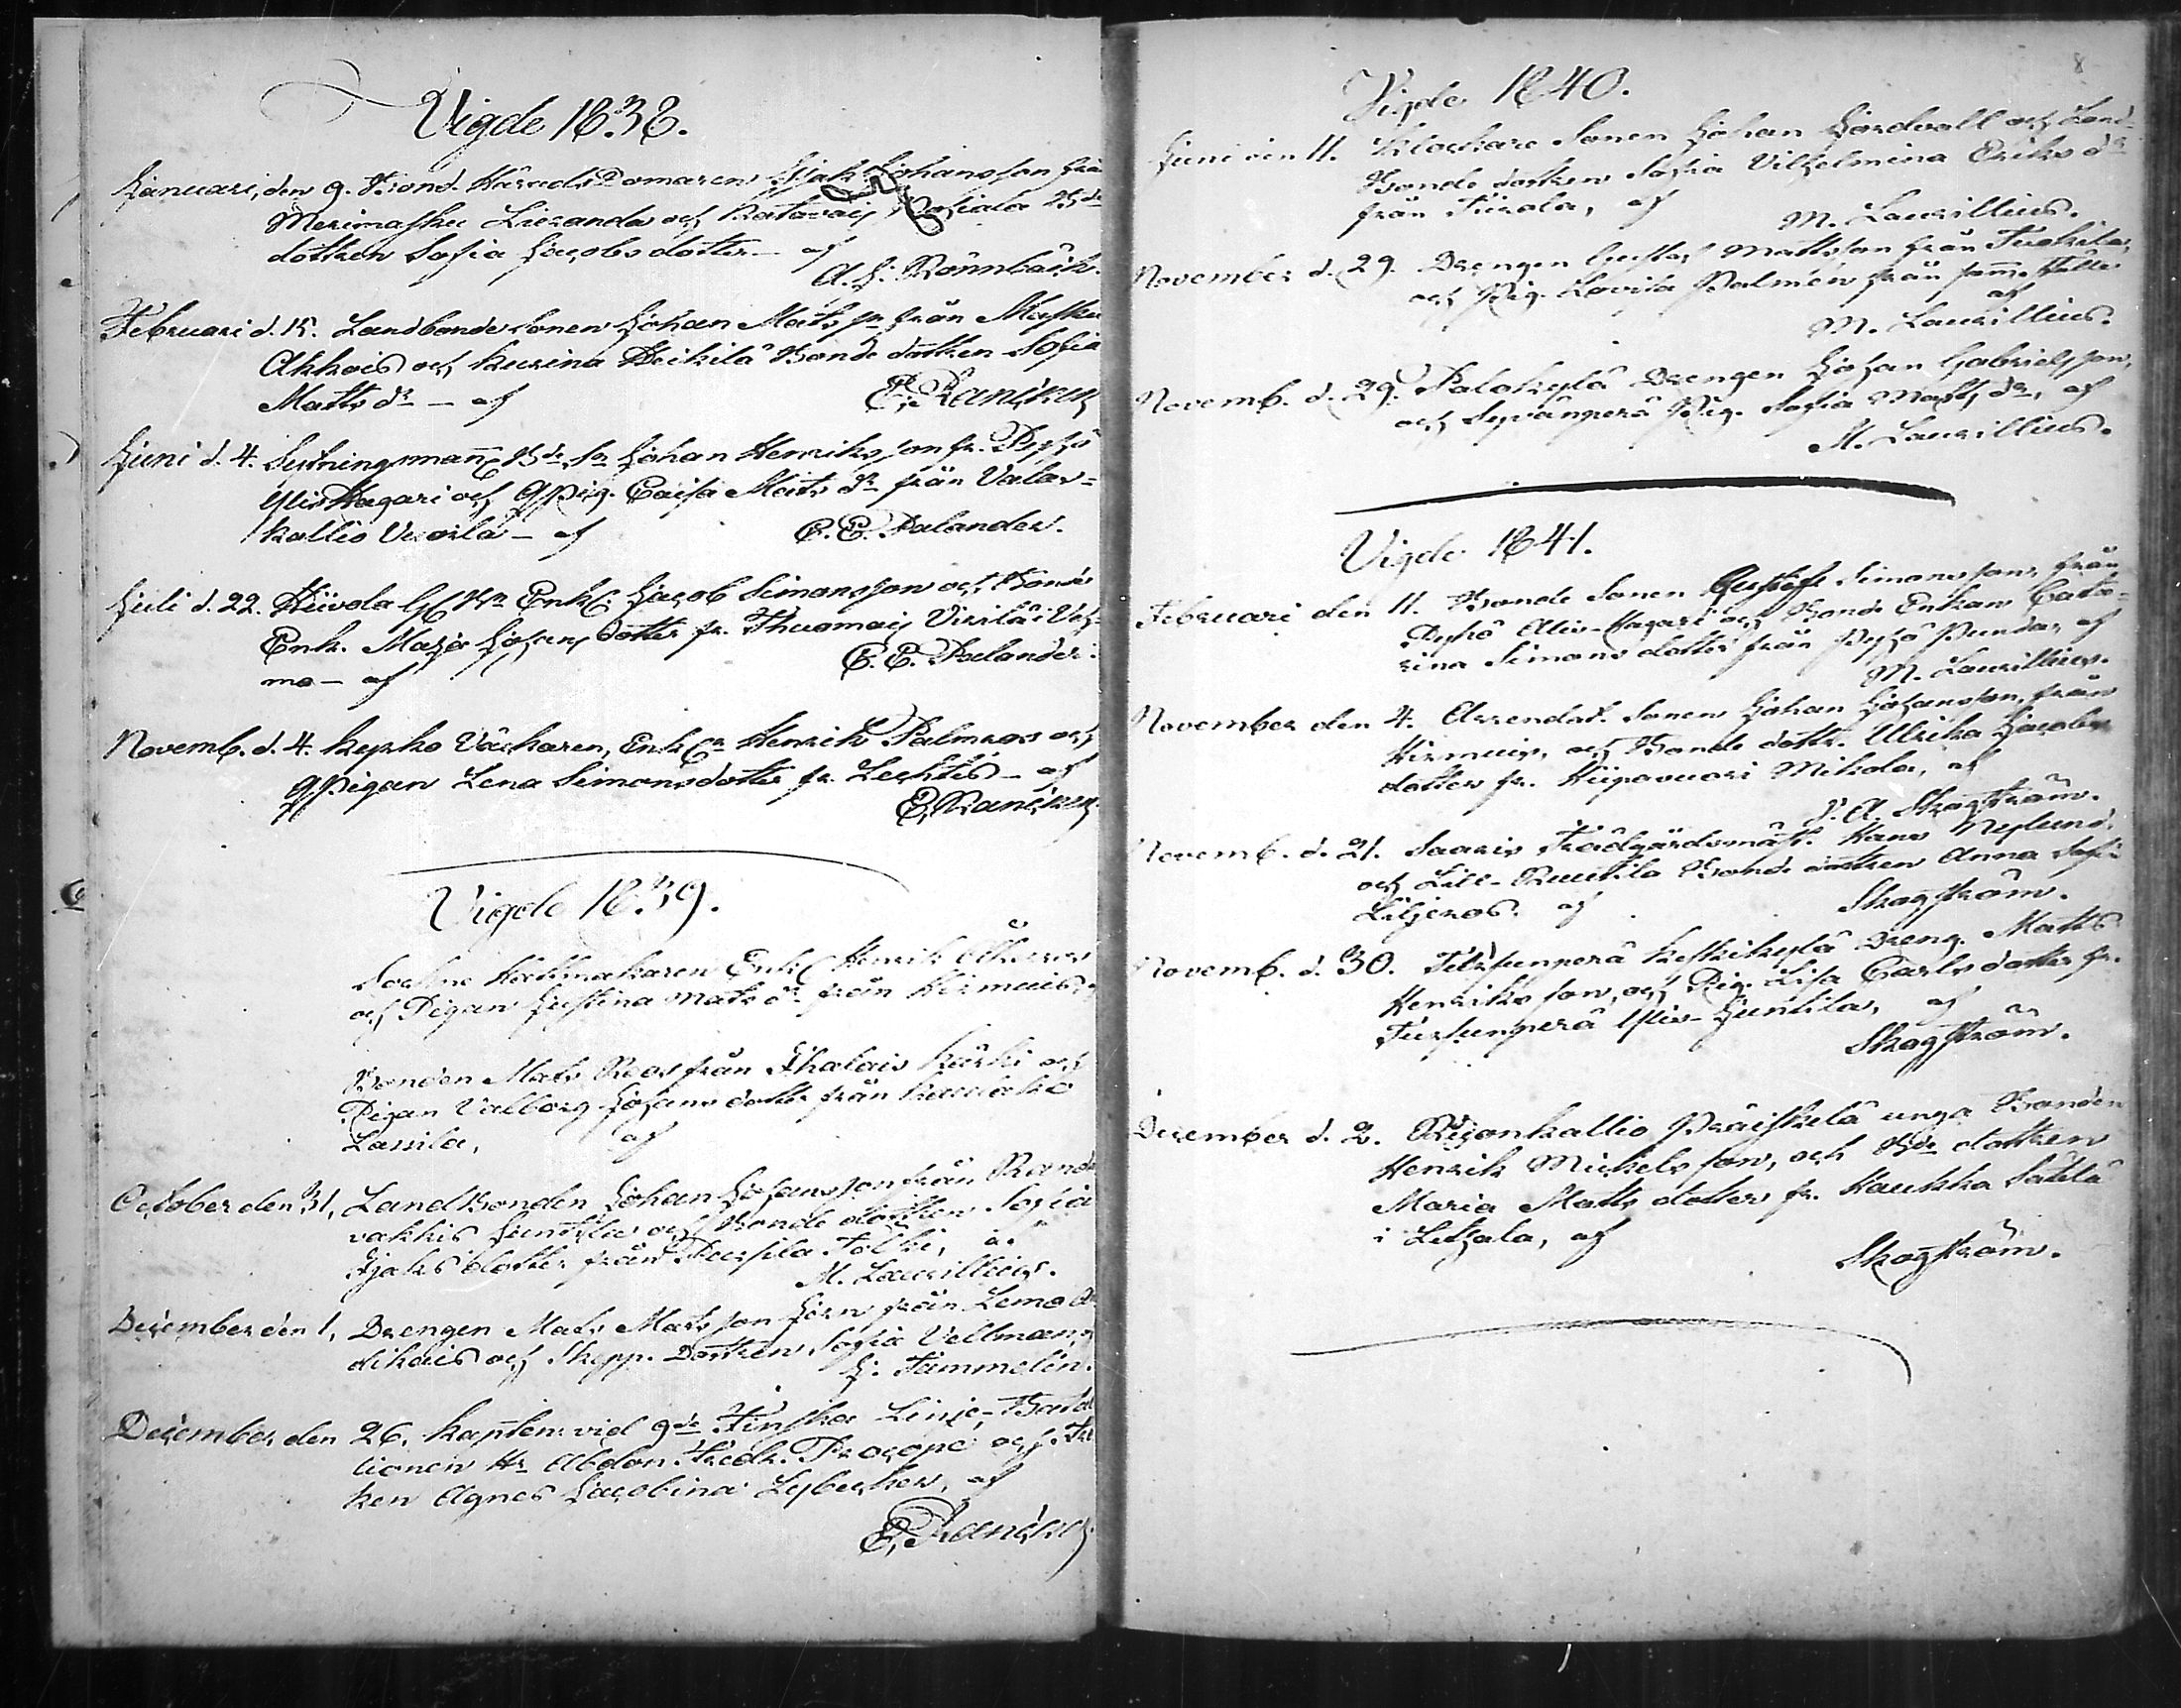 Vigde 1838.
Januari, den 9. Bond. Härads Domaren Isak Johansson från
Merimasku Lieranda och Katavais Pohjala Bde
dottren Sofia Jacobsdotter – af
A. J. Rönnbäck.
Februari d. 15. Landbonde Sonen Johan Mats sn från Masku
Akkois och Kurina Heikilä Bonde dottren Sofia
Matts dr – af
E. Rancken
Juni d. 4. Bde Sn Johan Henriksson fr. Pyhö
Ylis Hagari och Pig. Caisa Mats dr från Valas-
kallio Uusila – af
C. E. Palander.
Juli d. 22. Jacob Simonsson och Bonde
Enk. Maja Johans dotter fr. Thuomais Virilä i Veh-
ma – af
C. E. Palander.
Novemb. d. 4. Kyrko Vächaren, Enkl. Henrik Palmroos och
Pigan Lena Simonsdotter fr. Lechtis – af
E. Rancken
Vigde 1839.
Sockne Hattmakaren Enkl. Henrik
och Pigan Justina Mats dr från Hirmuis, af
Bonden Mats Roos från Ihalais Kärki och
Pigan Valborg Johans dotter från
Lassila, af
October den 31, LandBonden Johan Johansson från Rand
vakkis Junttila och Bonde dottren Sofia
Isaks dotter från Tursila Tölki, af
M. Laurillius.
December den 1, Drengen Mats Matsson Jern från Lemo
dikais och Skepp. Dottren Sofia Vellman, af
J. Tammelin.
December den 26. Kapten vid 9de Finska Linje-Batal
lionen Hr Abdon Fredr. Procopé och Frö
ken Agnes Jacobina Lybecker, af
E. Rancken
8
Vigde 1840.
Juni den 11. Klockare Sonen Johan Hordvall och Land-
Bonde dottren Sofia Vilhelmina Eriks dr
från Turola, af
M. Laurillius.
November d. 29. Drengen Gustaf Mattsson från Tuokila,
och Pig. Lovisa Palmén från samma ställe
af
M. Laurillius.
Novemb. d. 29. Palokylä Drengen Johan Gabrielsson,
och Syvänperä Pig. Sofia Matts dr, af
M. Laurillius.
Vigde 1841.
Februari den 11. Bonde Sonen Gustaf Simonsson, från
Pyhö Alis-Hagari och Bonde Enkan Cata-
rina Simons dotter från Pyhö Punda, af
M. Laurillius.
November den 4. Arrendat. Sonen Johan Johansson, från
Hirmuis, och Bonde dottr. Ulrika Jacobs
dotter fr. Hiipavuori Mikola, af
Skogström.
Novemb. d. 21. Saaris Trädgårdsmäst. Hans Nylund,
och Lill-Ruutila Bonde dottren Anna Sofia
Liljeros. af
Skogström.
Novemb. d. 30. Keskikylä Dreng. Matts
Henriksson, och Pig. Lisa Carls dotter fr.
Tursunperä Ylis-Juntila, af
Skogström.
December d. 2. Präiskilä unga Bonden
Henrik Mickelsson, och Bde dottren
Maria Matts dotter fr. Haukka Sätilä
i Letala, af
Skogström.